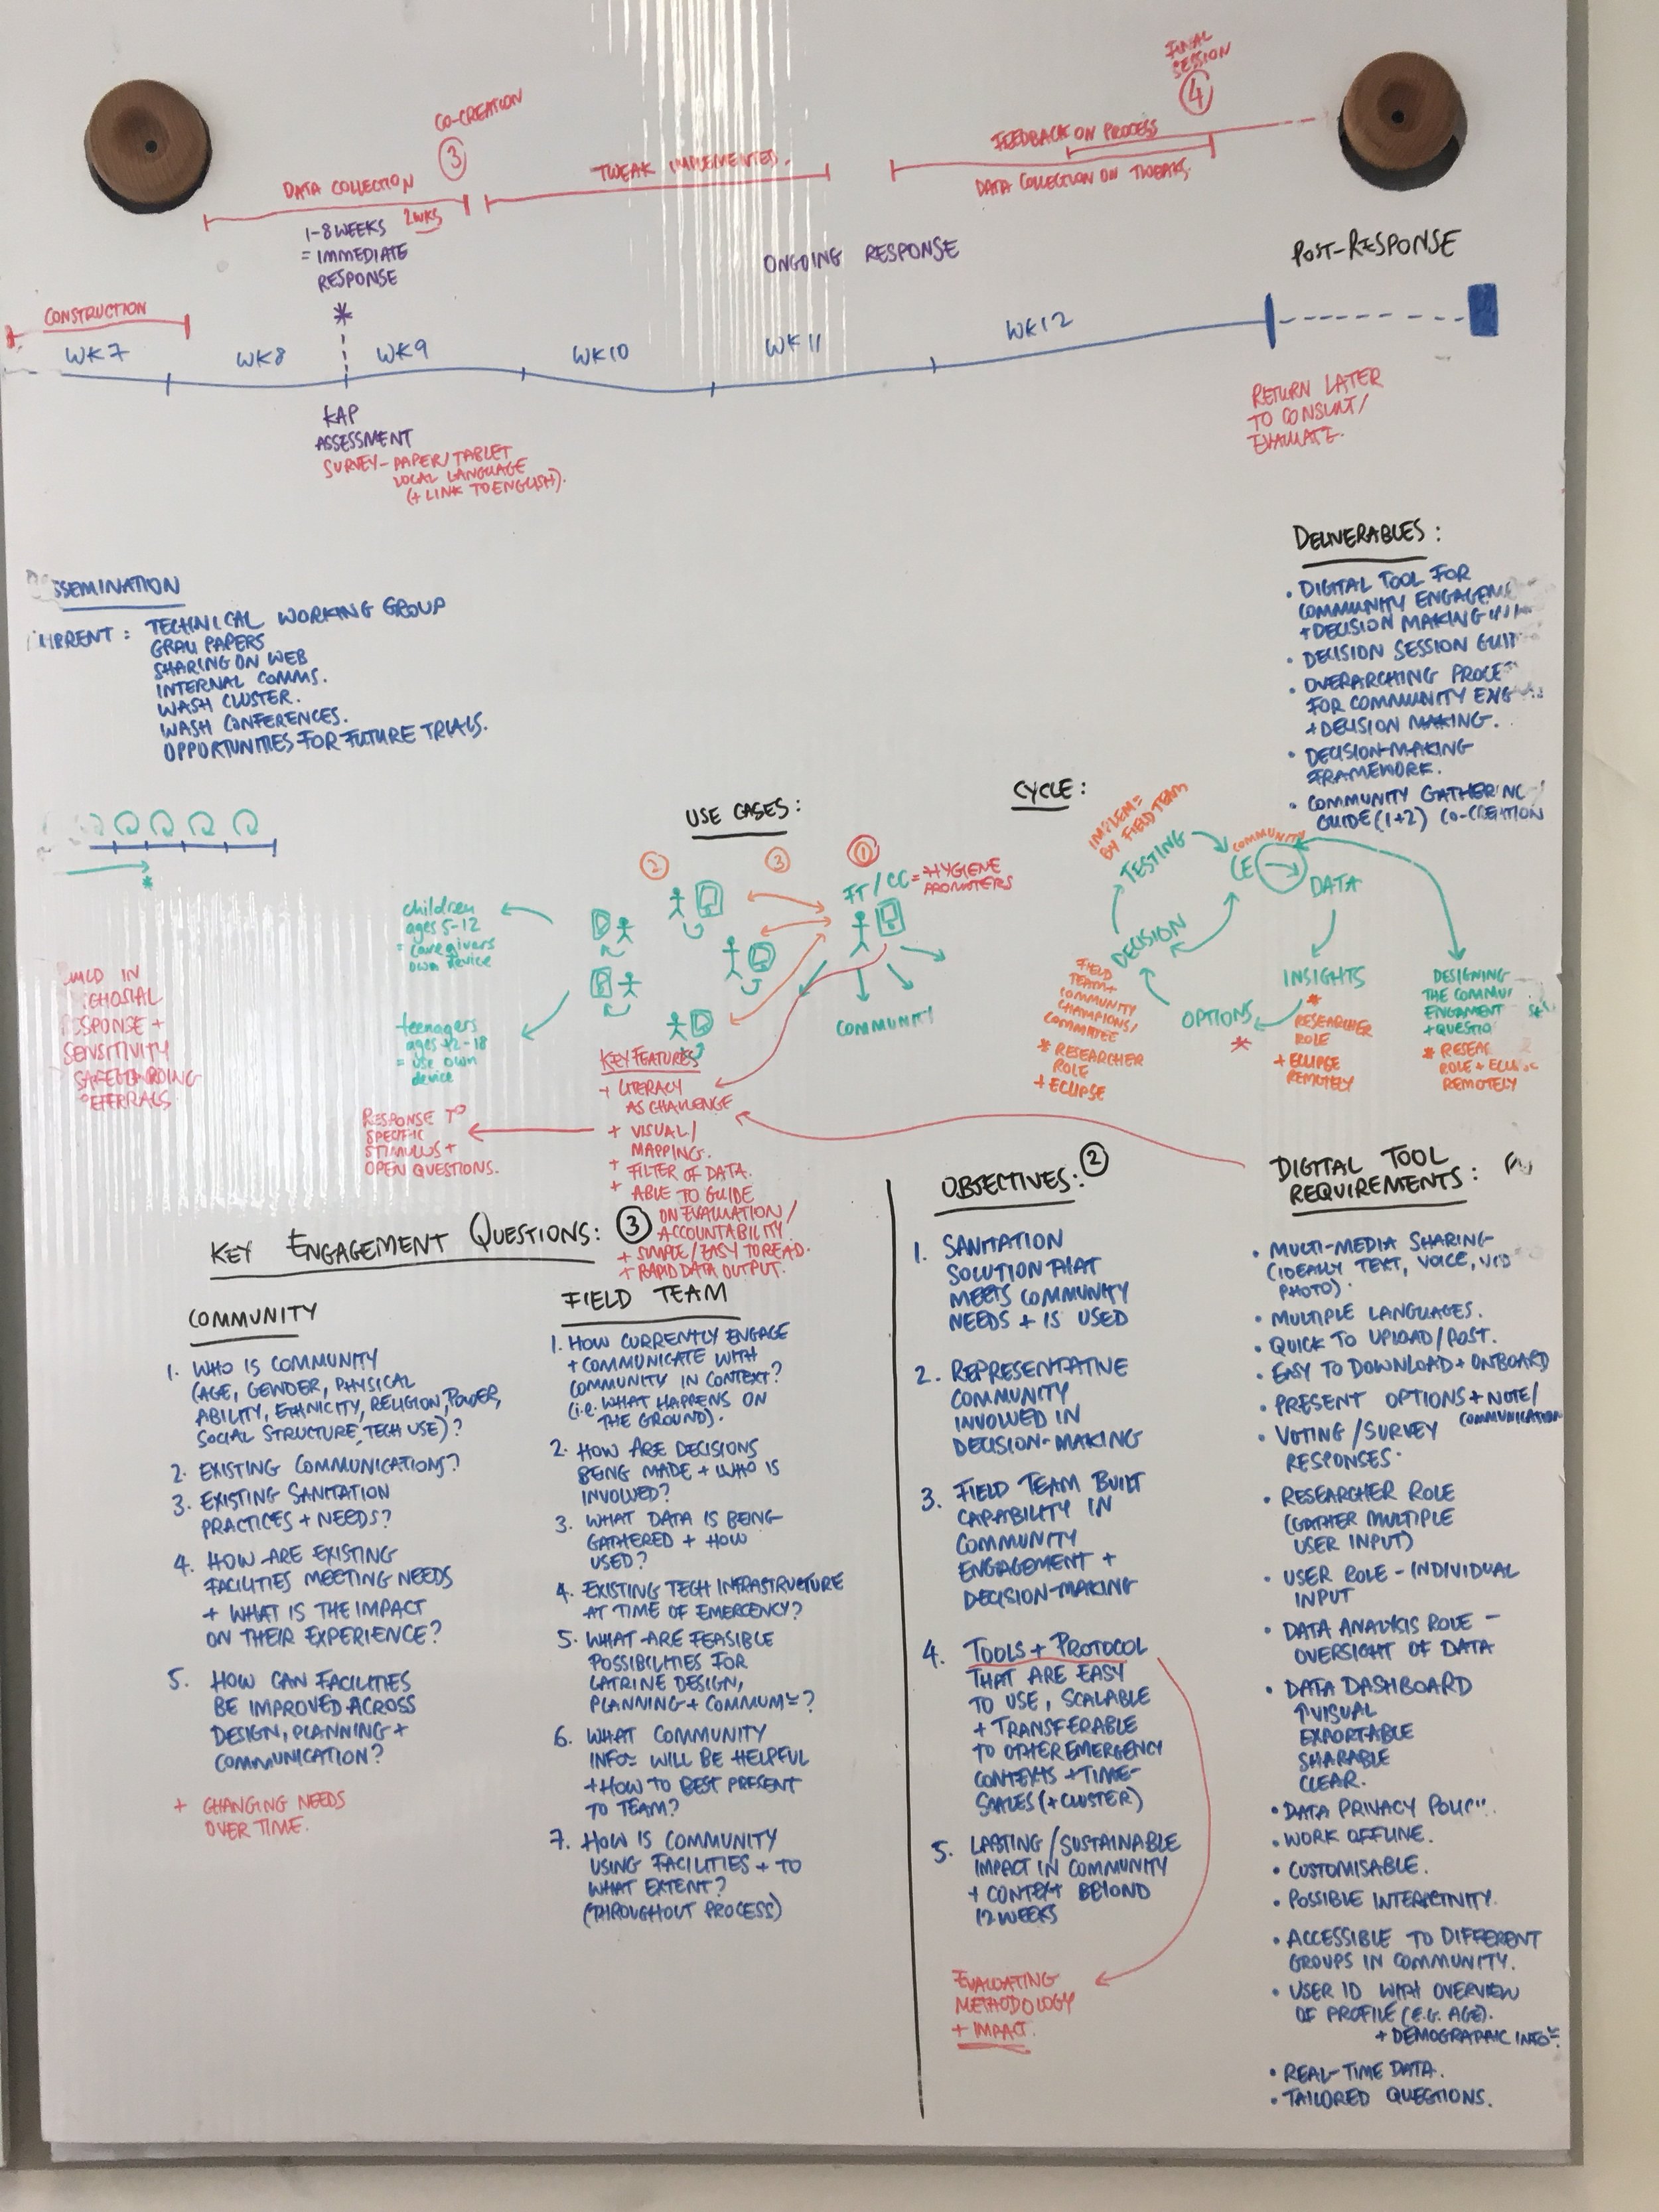 FINAL
SESSION
4
CO-CREATION
3
FEEDBACK ON PROCESS
DATA COLLECTION
2WKS
TWEAK IMPLEMENTED.
DATA COLLECTION ON TWEAKS.
1-8 WEEKS
= IMMEDIATE
RESPONSE
ONGOING RESPONSE
POST-RESPONSE
CONSTRUCTION
*
WK7
WK8
WK9
WK10
WK11
WK12
KAP
ASSESSMENT
SURVEY - PAPER/TABLET
LOCAL LANGUAGE
(+ LINK TO ENGLISH).
RETURN LATER
TO CONSULT/
EVALUATE.
DISSEMINATION
CURRENT: TECHNICAL WORKING GROUP
GRAU PAPERS
SHARING ON WEB
INTERNAL COMMS.
WASH CLUSTER.
WASH CONFERENCES.
OPPORTUNITIES FOR FUTURE TRIALS.
DELIVERABLES:
• DIGITAL TOOL FOR
COMMUNITY
+ DECISION MAKING
• DECISION SESSION
• OVERARCHING
FOR COMMUNITY
+ DECISION MAKING.
• DECISION-MAKING
FRAMEWORK.
• COMMUNITY GATHERING
GUIDE (1+2) CO-CREATION
USE CASES:
2
3
1
FT / CC = HYGIENE
PROMOTERS
COMMUNITY
children
ages 5-12
= caregivers
own device
teenagers
ages 12-18
= use own
device
CYCLE:
IMPLEM=
BY FIELD TEAM
TESTING
COMMUNITY
CE
DATA
INSIGHTS
*
RESEARCHER
ROLE
+ ECLIPSE
REMOTELY
OPTIONS
*
DECISION
FIELD
TEAM +
COMMUNITY
CHAMPIONS/
COMMITTEE
* RESEARCHER
ROLE
+ ECLIPSE
DESIGNING
THE
ENGAGEMENT
+
*
ROLE +
REMOTELY
IN
+
SENSITIVITY
SAFEGUARDING
RESPONSE TO
SPECIFIC
STIMULUS +
OPEN QUESTIONS.
KEY FEATURES
+ LITERACY
AS CHALLENGE
+ VISUAL/
MAPPING.
+ FILTER OF DATA.
+ ABLE TO GUIDE
ON EVALUATION/
ACCOUNTABILITY
+ SIMPLE/EASY TO READ.
+ RAPID DATA OUTPUT.
KEY ENGAGEMENT QUESTIONS: 3
COMMUNITY
1. WHO IS COMMUNITY
(AGE, GENDER, PHYSICAL
ABILITY, ETHNICITY, RELIGION, POWER,
SOCIAL STRUCTURE, TECH USE)?
2. EXISTING COMMUNICATIONS?
3. EXISTING SANITATION
PRACTICES + NEEDS?
4. HOW ARE EXISTING
FACILITIES MEETING NEEDS
+ WHAT IS THE IMPACT
ON THEIR EXPERIENCE?
5. HOW CAN FACILITIES
BE IMPROVED ACROSS
DESIGN, PLANNING +
COMMUNICATION?
+ CHANGING NEEDS
OVER TIME.
FIELD TEAM
1. HOW CURRENTLY ENGAGE
+ COMMUNICATE WITH
COMMUNITY IN CONTEXT?
(i.e. WHAT HAPPENS ON
THE GROUND).
2. HOW ARE DECISIONS
BEING MADE + WHO IS
INVOLVED?
3. WHAT DATA IS BEING
GATHERED + HOW
USED?
4. EXISTING TECH INFRASTRUCTURE
AT TIME OF EMERGENCY?
5. WHAT ARE FEASIBLE
POSSIBILITIES FOR
LATRINE DESIGN,
PLANNING + COMMUN≃?
6. WHAT COMMUNITY
INFO≃ WILL BE HELPFUL
+ HOW TO BEST PRESENT
TO TEAM?
7. HOW IS COMMUNITY
USING FACILITIES + TO
WHAT EXTENT?
(THROUGHOUT PROCESS)
OBJECTIVES: 2
1. SANITATION
SOLUTION THAT
MEETS COMMUNITY
NEEDS + IS USED
2. REPRESENTATIVE
COMMUNITY
INVOLVED IN
DECISION-MAKING
3. FIELD TEAM BUILT
CAPABILITY IN
COMMUNITY
ENGAGEMENT +
DECISION-MAKING
4. TOOLS + PROTOCOL
THAT ARE EASY
TO USE, SCALABLE
+ TRANSFERABLE
TO OTHER EMERGENCY
CONTEXTS + TIME-
SCALES (+ CLUSTER)
5. LASTING/SUSTAINABLE
IMPACT IN COMMUNITY
+ CONTEXT BEYOND
12 WEEKS
EVALUATING
METHODOLOGY
+ IMPACT.
DIGITAL TOOL
REQUIREMENTS:
• MULTI-MEDIA SHARING
(IDEALLY TEXT, VOICE, VID
PHOTO).
• MULTIPLE LANGUAGES.
• QUICK TO UPLOAD/POST.
• EASY TO DOWNLOAD + ONBOARD
• PRESENT OPTIONS + NOTE/
COMMUNICATION
• VOTING/SURVEY
RESPONSES.
• RESEARCHER ROLE
(GATHER MULTIPLE
USER INPUT)
• USER ROLE - INDIVIDUAL
INPUT
• DATA ANALYSIS ROLE -
OVERSIGHT OF DATA
• DATA DASHBOARD
↑ VISUAL
EXPORTABLE
SHARABLE
CLEAR.
• DATA PRIVACY POLICY.
• WORK OFFLINE.
• CUSTOMISABLE.
• POSSIBLE INTERACTIVITY.
• ACCESSIBLE TO DIFFERENT
GROUPS IN COMMUNITY.
• USER ID WITH OVERVIEW
OF PROFILE (E.G. AGE).
+ DEMOGRAPHIC INFO≃
• REAL-TIME DATA.
• TAILORED QUESTIONS.